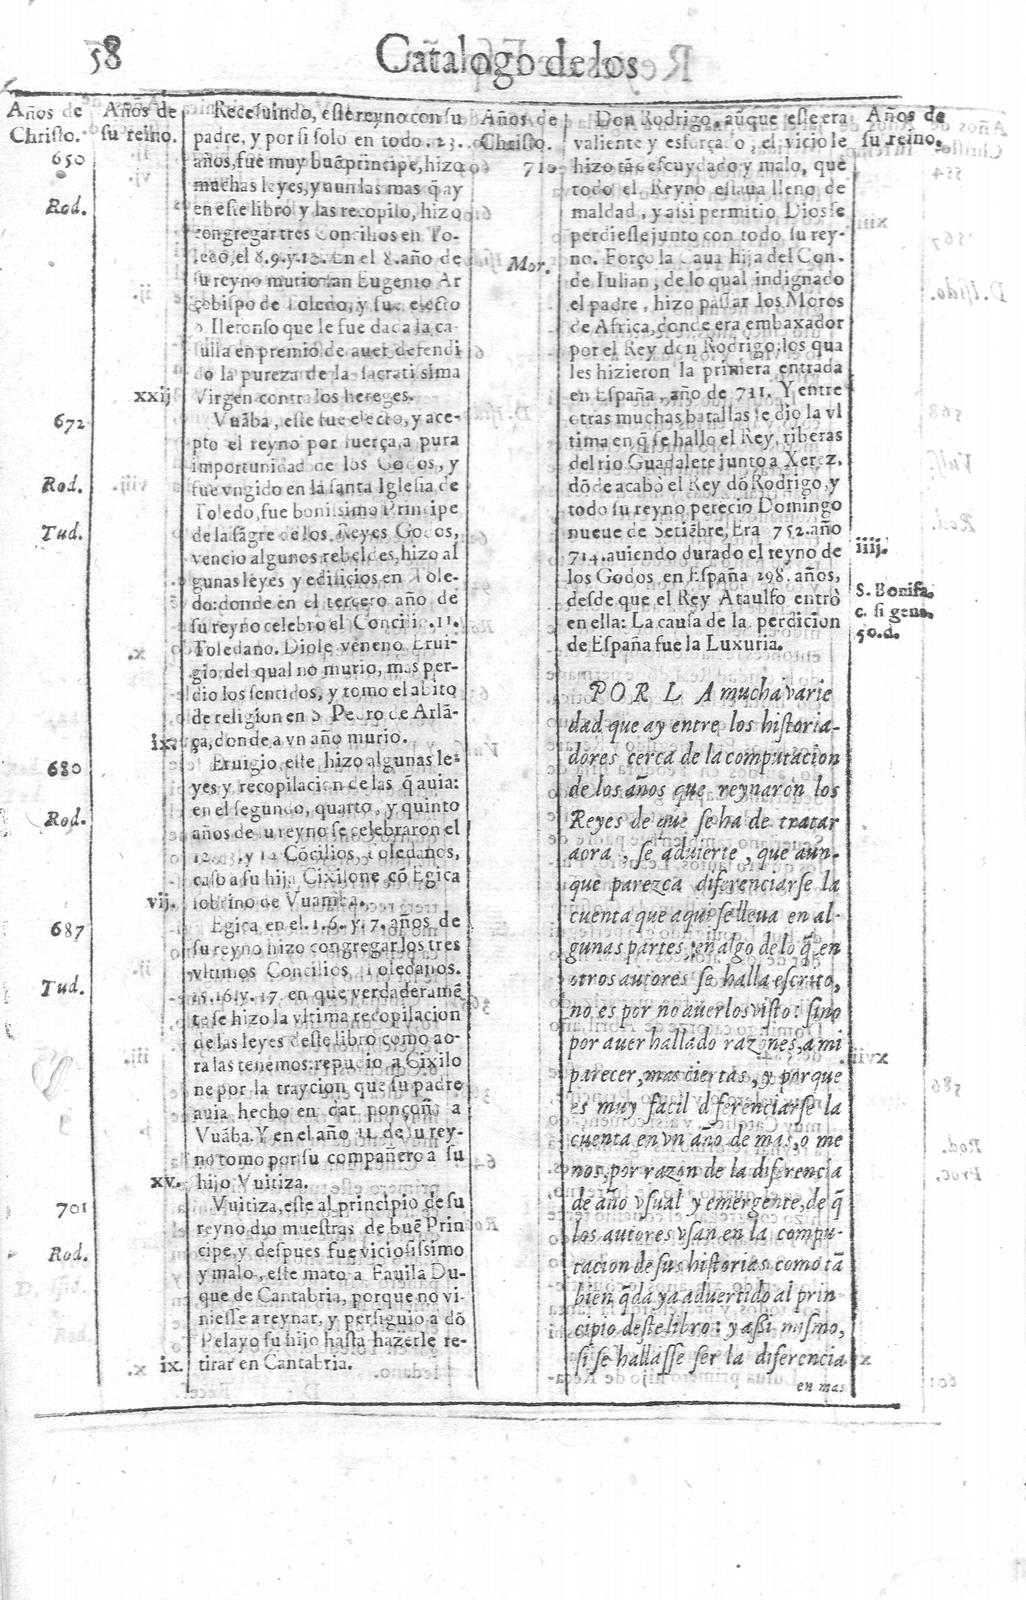 58
Catalogo de los
Años de Christo.
Años de su reino.
650
Rod.
xxij
672
Rod.
Tud.
ix.
680
Rod.
vij.
687
Tud.
xv.
701
Rod.
ix.
Recesuindo, este reyno con su
padre, y por si solo en todo .23.
años, fue muy buē principe, hizo
muchas leyes, y aun las mas q̄ ay
en este libro y las recopilo, hizo
congregar tres Concilios en To-
ledo, el 8.9. y. 10. En el 8. año de
su reyno murio san Eugenio Ar
çobispo de Toledo, y fue electo
S. Ilefonso que le fue dada la ca-
sulla en premio de auer defendi
do la pureza de la sacratissima
Virgen contra los hereges.
Vuāba, este fue electo, y ace-
pto el reyno por fuerça, a pura
importunidad de los Godos, y
fue vngido en la santa Iglesia de
Toledo, fue bonissimo Principe
de la sāgre de los Reyes Godos,
vencio algunos rebeldes, hizo al
gunas leyes y edificios en Tole-
do: donde en el tercero año de
su reyno celebro el Concilio .11.
Toledano. Diole veneno Erui-
gio, del qual no murio, mas per-
dio los sentidos, y tomo el abito
de religion en S. Pedro de Arlā-
ça, donde a vn año murio.
Eruigio, este hizo algunas le-
yes y recopilacion de las q̄ auia:
en el segundo, quarto, y quinto
años de su reyno se celebraron el
12. 13. y 14 Cōcilios, Toledanos,
caso a su hija Cixilone cō Egica
sobrino de Vuamba.
Egica en el .1. 6. y. 7. años de
su reyno hizo congregar los tres
vltimos Concilios Toledanos.
15. 16. y. 17. en que verdaderamē
te se hizo la vltima recopilacion
de las leyes deste libro como ao-
ra las tenemos: repudio a Cixilo
ne por la traycion que su padre
auia hecho en dar ponçoña a
Vuāba. Y en el año 11. de su rey-
no tomo por su compañero a su
hijo Vuitiza.
Vuitiza, este al principio de su
reyno dio muestras de buē Prin
cipe, y despues fue viciosissimo
y malo, este mato a Fauila Du-
que de Cantabria, porque no vi-
niesse a reynar, y persiguio a dō
Pelayo su hijo hasta hazerle re-
tirar en Cantabria.
Años de Christo.
710
Mor.
Años de su reino.
iiij.
S. Bonifa.
c. si gens.
50.d.
Don Rodrigo, aūque este era
valiente y esforçado, el vicio le
hizo tā descuydado y malo, que
todo el Reyno estaua lleno de
maldad, y assi permitio Dios se
perdiesse junto con todo su rey-
no. Forço la Caua hija del Con-
de Iulian, de lo qual indignado
el padre, hizo passar los Moros
de Africa, donde era embaxador
por el Rey don Rodrigo: los qua
les hizieron la primera entrada
en España, año de 711. Y entre
otras muchas batallas se dio la vl
tima en q̄ se hallo el Rey, riberas
del rio Guadalete junto a Xerez.
dōde acabo el Rey dō Rodrigo, y
todo su reyno perecio Domingo
nueue de Setiēbre, Era 752. año
714. auiendo durado el reyno de
los Godos en España 298. años,
desde que el Rey Ataulfo entrò
en ella: La causa de la perdicion
de España fue la Luxuria.
POR LA mucha varie
dad que ay entre los historia-
dores cerca de la computacion
de los años que reynaron los
Reyes de que se ha de tratar
aora, se aduierte, que aun-
que parezca diferenciarse la
cuenta que aqui se lleua en al-
gunas partes, en algo de lo q̄ en
otros autores se halla escrito,
no es por no auerlos visto: sino
por auer hallado razones, a mi
parecer, mas ciertas, y porque
es muy facil diferenciarse la
cuenta en vn año de mas, o me
nos, por razon de la diferencia
de año vsual y emergente, de q̄
los autores vsan en la compu-
tacion de sus historias como tā
bien q̄da ya aduertido al prin
cipio deste libro: y assi mismo,
si se hallasse ser la diferencia
en mas